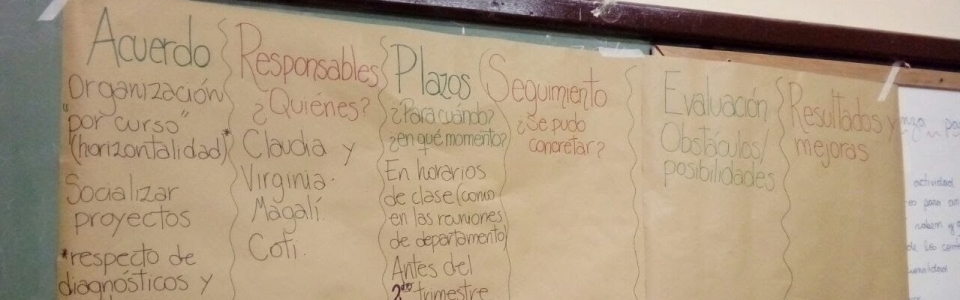 Acuerdo
Organización
"por curso"
(horizontalidad)*
Socializar
proyectos
*respecto de
diagnósticos y
Responsables
¿Quiénes?
Claudia y
Virginia.
Magalí
Coti.
Plazos
¿Para cuándo?
¿en qué momento?
En horarios
de clase (como
en las reuniones
de departamento)
Antes del
2do trimestre
Seguimiento
¿Se pudo
concretar?
Evaluación
Obstáculos/
posibilidades
Resultados y
mejoras
actividad